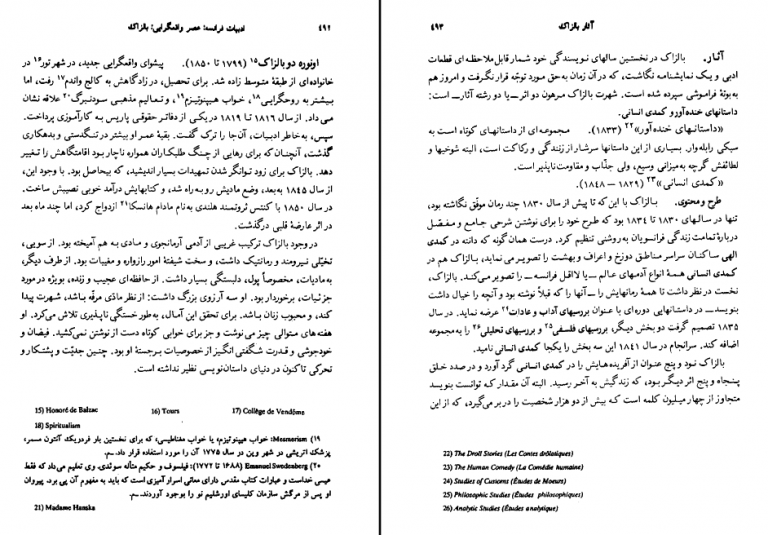 ۴۹۲ ادبیات فرانسه: عصر واقعگرایی: بالزاک
اونوره دو بالزاک۱۵ (۱۷۹۹ تا ۱۸۵۰). پیشوای واقعگرایی جدید، در شهر تور۱۶ در
خانواده‌ای از طبقهٔ متوسط زاده شد. برای تحصیل، در زادگاهش به کالج واندم۱۷ رفت، اما
بیشتر به روحگرایی۱۸، خواب هیپنوتیزم۱۹، و تعالیم مذهبی سودنبرگ۲۰ علاقه نشان
می‌داد. از سال ۱۸۱۶ تا ۱۸۱۹ در یکی از دفاتر حقوقی پاریس به کارآموزی پرداخت.
سپس، به‌خاطر ادبیات، آن‌جا را ترک گفت. بقیهٔ عمر او بیشتر در تنگدستی و بدهکاری
گذشت، آنچنان که برای رهایی از چنگ طلبکاران همواره ناچار بود اقامتگاهش را تغییر
دهد. بالزاک برای زود توانگر شدن تمهیدات بسیار اندیشید، که بیحاصل بود. با وجود این،
از سال ۱۸۴۵ به‌بعد، وضع مادیش رو به راه شد، و کتابهایش درآمد خوبی نصیبش ساخت.
در سال ۱۸۵۰ با کنتس ثروتمند هلندی به‌نام مادام هانسکا۲۱ ازدواج کرد، اما چند ماه بعد
در اثر عارضهٔ قلبی درگذشت.
در وجود بالزاک ترکیب غریبی از آدمی آرمانجوی و مادی به هم آمیخته بود. از سویی،
تخیّلی نیرومند و رمانتیک داشت، و سخت شیفتهٔ امور رازواره و مغیبات بود. از طرف دیگر،
به مادیات، مخصوصاً پول، دلبستگی بسیار داشت. از حافظه‌ای عجیب و زنده، بویژه در مورد
جزئیات، برخوردار بود. او سه آرزوی بزرگ داشت: از نظر مادّی مرفّه باشد، شهرت پیدا
کند، و محبوب زنان باشد. برای تحقق این آمال، به‌طور خستگی ناپذیری تلاش می‌کرد. او
هفته‌های متوالی چیز می‌نوشت و جز برای خوابی کوتاه دست از نوشتن نمی‌کشید. فیضان و
خودجوشی و قدرت شگفتی انگیز از خصوصیات برجستهٔ او بود. چنین جدیّت و پشتکار و
تحرکی تاکنون در دنیای داستان‌نویسی نظیر نداشته است.
15) Honoré de Balzac 16) Tours 17) Collège de Vendôme
18) Spiritualism
۱۹) Mesmerism: خواب هیپنوتیزم، یا خواب مغناطیسی، که برای نخستین بار فردریک آنتون مسمر،
پزشک اتریشی در شهر وین در سال ۱۷۷۵ آن را مورد استفاده قرار داد.ـ م.
۲۰) Emanuel Swedenborg (۱۶۸۸ تا ۱۷۷۲): فیلسوف و حکیم متأله سوئدی. وی تعلیم می‌داد که فقط
عیسی خداست و عبارات کتاب مقدس دارای معانی اسرارآمیزی است که باید به مفهوم آن پی برد. پیروان
او پس از مرگش سازمان کلیسای اورشلیم نو را بوجود آوردند.ـ م.
21) Madame Hanska
آثار بالزاک ۴۹۳
آثار. بالزاک در نخستین سالهای نویسندگی خود شمار قابل ملاحظه‌ای قطعات
ادبی و یک نمایشنامه نگاشت، که در آن زمان به‌حق مورد توجّه قرار نگرفت و امروز هم
به بوتهٔ فراموشی سپرده شده است. شهرت بالزاک مرهون دو اثر ـ یا دو رشته آثار ـ است:
داستانهای خنده‌آور و کمدی انسانی.
«داستانهای خنده‌آور»۲۲ (۱۸۳۳). مجموعه‌ای از داستانهای کوتاه است به
سبکی رابله‌وار. بسیاری از این داستانها سرشار از زندگی و رکاکت است، البته شوخیها و
لطائفش گرچه به‌میزانی وسیع، ولی جذّاب و مقاومت‌ناپذیر است.
«کمدی انسانی»۲۳ (۱۸۲۹ ـ ۱۸۴۸).
طرح و محتوی. بالزاک با این که تا پیش از سال ۱۸۳۰ چند رمان موفّق نگاشته بود،
تنها در سالهای ۱۸۳۰ تا ۱۸۳۴ بود که طرح خود را برای نوشتن شرحی جامع و مفصّل
دربارهٔ تمامت زندگی فرانسویان به روشنی تنظیم کرد. درست همان گونه که دانته در کمدی
الهی ساکنان سراسر مناطق دوزخ و اعراف و بهشت را تصویر می‌نماید، بالزاک هم در
کمدی انسانی همهٔ انواع آدمهای عالم ـ یا لااقل فرانسه ـ را تصویر می‌کند. بالزاک،
نخست در نظر داشت تا همهٔ رمانهایش را ـ آنها را که قبلاً نوشته بود و آنچه را خیال داشت
بنویسد ـ در داستانهایی دوره‌ای با عنوان بررسیهای آداب و عادات۲۴ عرضه نماید. در سال
۱۸۳۵ تصمیم گرفت دو بخش دیگر، بررسیهای فلسفی۲۵ و بررسیهای تحلیلی۲۶ را به مجموعه
اضافه کند. سرانجام در سال ۱۸۴۱ این سه بخش را یکجا کمدی انسانی نامید.
بالزاک نود و پنج عنوان از آفریده‌هایش را در کمدی انسانی گرد آورد و در صدد خلق
پنجاه و پنج اثر دیگر بود، که زندگیش به آخر رسید. البته آن مقدار که توانست بنویسد
متجاوز از چهار میلیون کلمه است که بیش از دو هزار شخصیت را در بر می‌گیرد، که از این
22) The Droll Stories (Les Contes drôlatiques)
23) The Human Comedy (La Comédie humaine)
24) Studies of Customs (Études de Moeurs)
25) Philosophic Studies (Études philosophiques)
26) Analytic Studies (Études analytique)